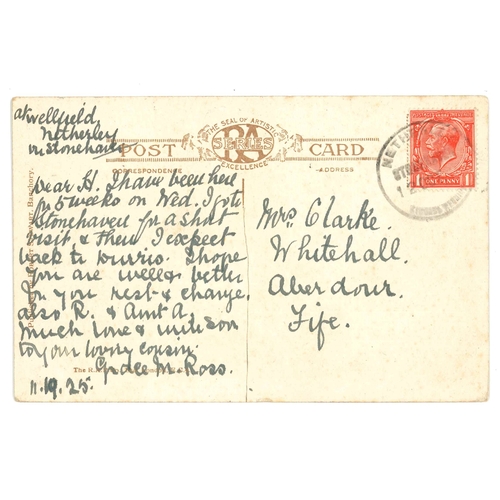 at Wellfield,
Netherley
by Stonehaven
THE SEAL OF ARTISTIC
EXCELLENCE
RA
SERIES
POST CARD
CORRESPONDENCE
ADDRESS
Dear H. I have been here
5 weeks on Wed. I go to
Stonehaven for a short
visit & then I expect
back to Durris. I hope
you are well & better
for your rest & change,
also R. & Aunt A.
Much love &
to you loving cousin.
Grace M. Ross.
11.19.25.
Mrs Clarke.
Whitehall.
Aberdour.
Fife.
NETH
ONE PENNY
The R.A.